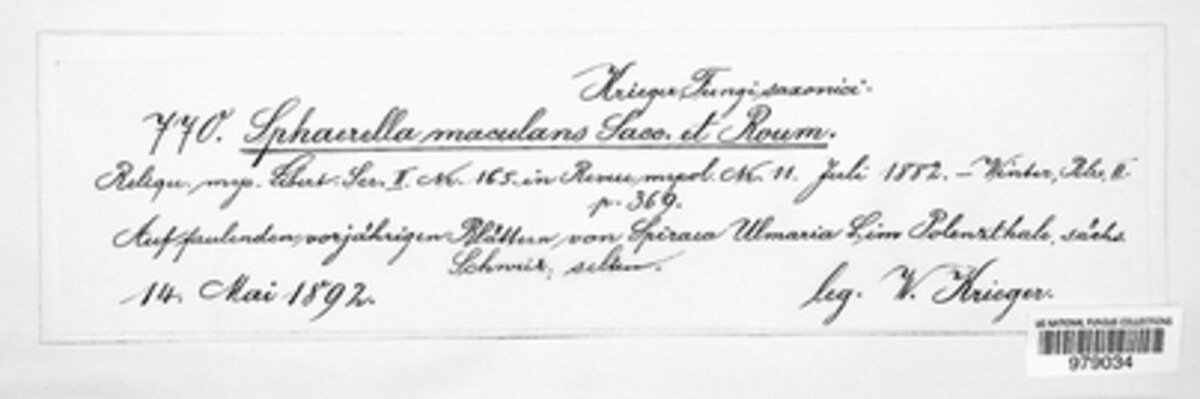 Krieger, Fungi saxonici.
770. Sphaerella maculans Sacc. et Roum.
Reliqu. myc. Libert. Ser. II. Nr. 165. in Revue mycol. Nr. 11. Juli 1882. — Winter, Pilze, II.
p. 369.
Auf faulenden, vorjährigen Blättern von Spiraea Ulmaria L. im Polenzthale, sächs.
Schweiz; selten.
14. Mai 1892.
leg. W. Krieger.
US NATIONAL FUNGUS COLLECTIONS
979034